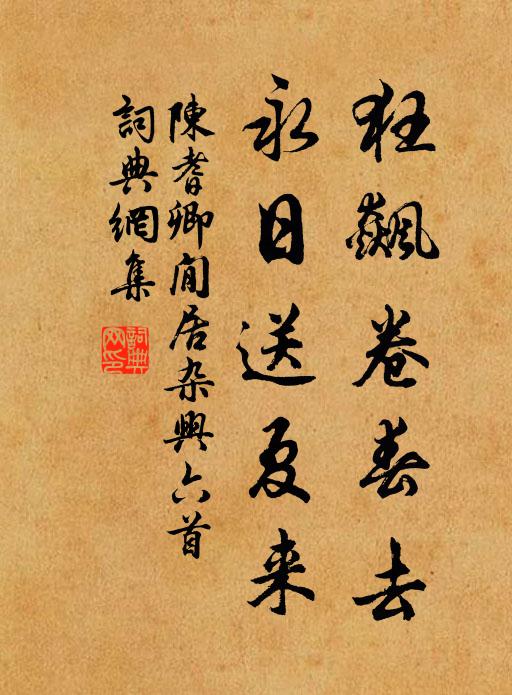 狂飆卷春去
永日送夏来
陳耆卿閒居杂興六首
詞典網集
詞典
网印